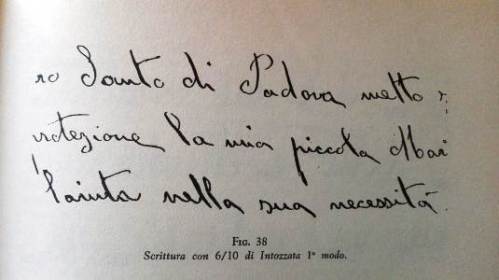 ro Santo di Padova metto
rotezione la mia piccola Mari
l'aiuta nella sua necessità.
FIG. 38
Scrittura con 6/10 di Intozzata 1º modo.